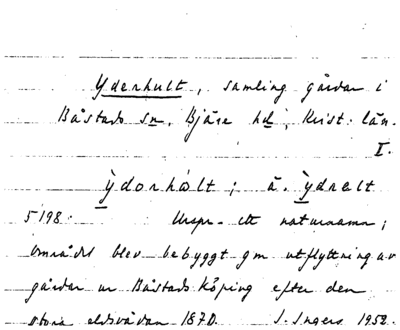 Yderhult, samling gårdar i
Båstads sn, Bjäre hd, Krist: län.
I.
Ỳdorhòlt; ä. Ỳdhelt
5198. Urspr. ett naturnamn;
området blev bebyggt gm utflyttning av
gårdar ur Båstads köping efter den
stora eldsvådan 1870. I. Ingers 1952.